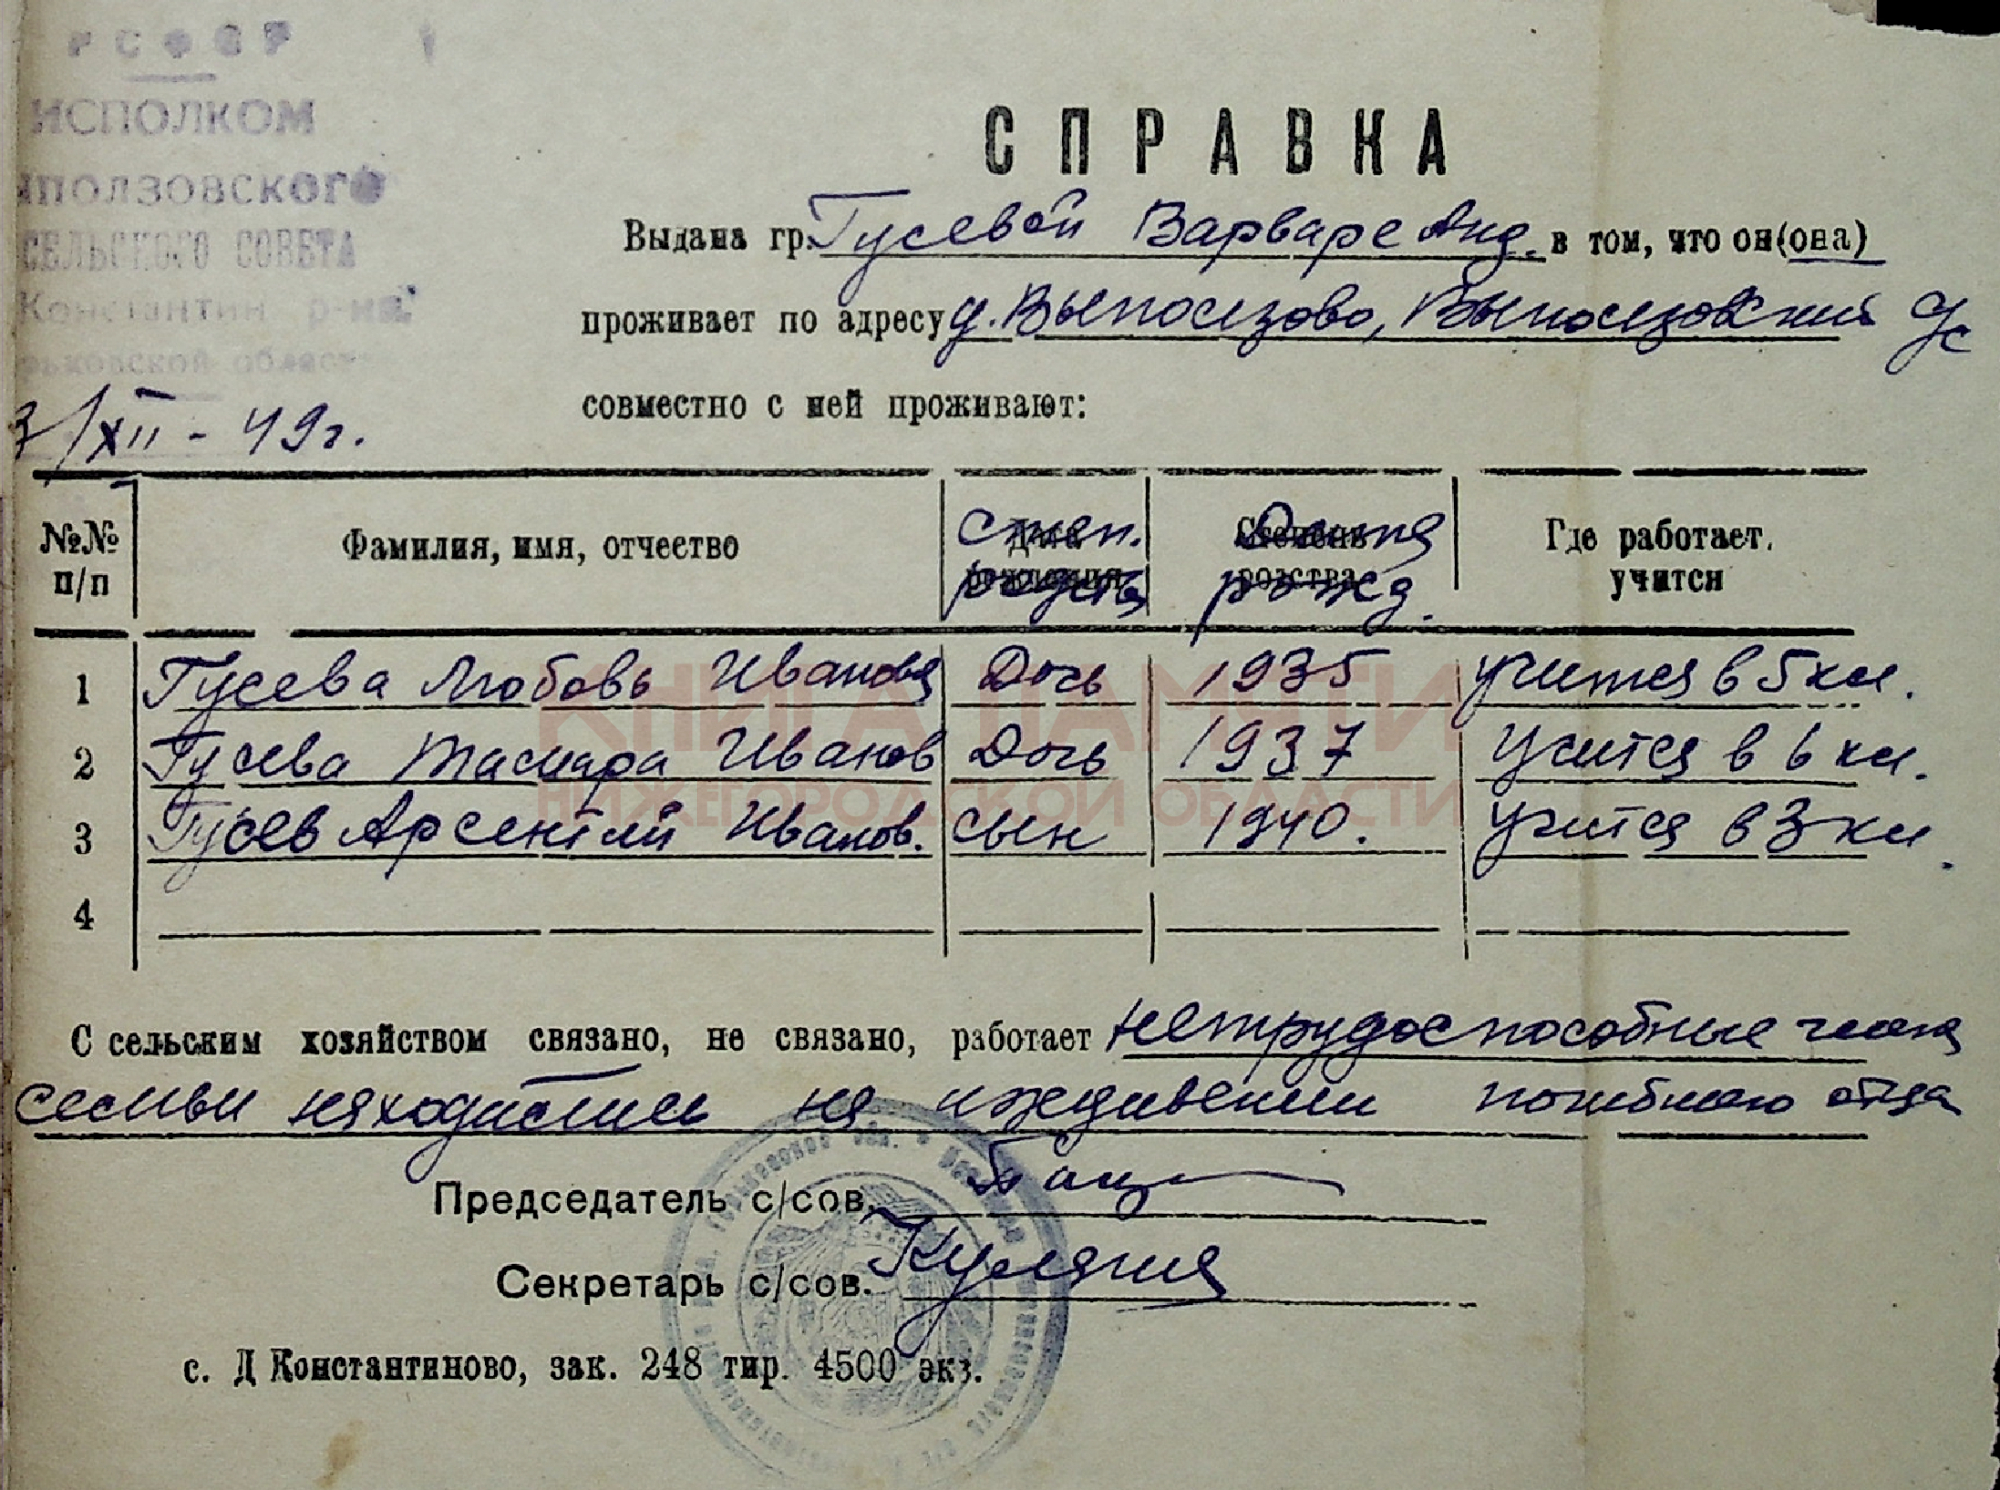 РСФСР
ИСПОЛКОМ
ыползовского
СЕЛЬСКОГО СОВЕТА
Константин р-на.
рьковской област
/XII - 49г.
СПРАВКА
Выдана гр. Гусевой Варваре Анд. в том, что он(она)
проживает по адресу д. Выползово, Выползовский с/с
совместно с ней проживают:
№№ п/п Фамилия, имя, отчество Дата рождения степ. родства Степень родства Дата рожд. Где работает, учится
1 Гусева Любовь Ивановн Дочь 1935 учится в 5 кл.
2 Гусева Тамара Иванов Дочь 1937 Учится в 6 кл.
3 Гусев Арсентий Иванов. сын 1940. Учится в 3 кл.
4
КНИГА ПАМЯТИ
НИЖЕГОРОДСКОЙ ОБЛАСТИ
С сельским хозяйством связано, не связано, работает нетрудоспособные члены
семьи находились на иждивении погибшего отца
Председатель с/сов.
Секретарь с/сов. Кулягия
с. Д Константиново, зак. 248 тир. 4500 экз.